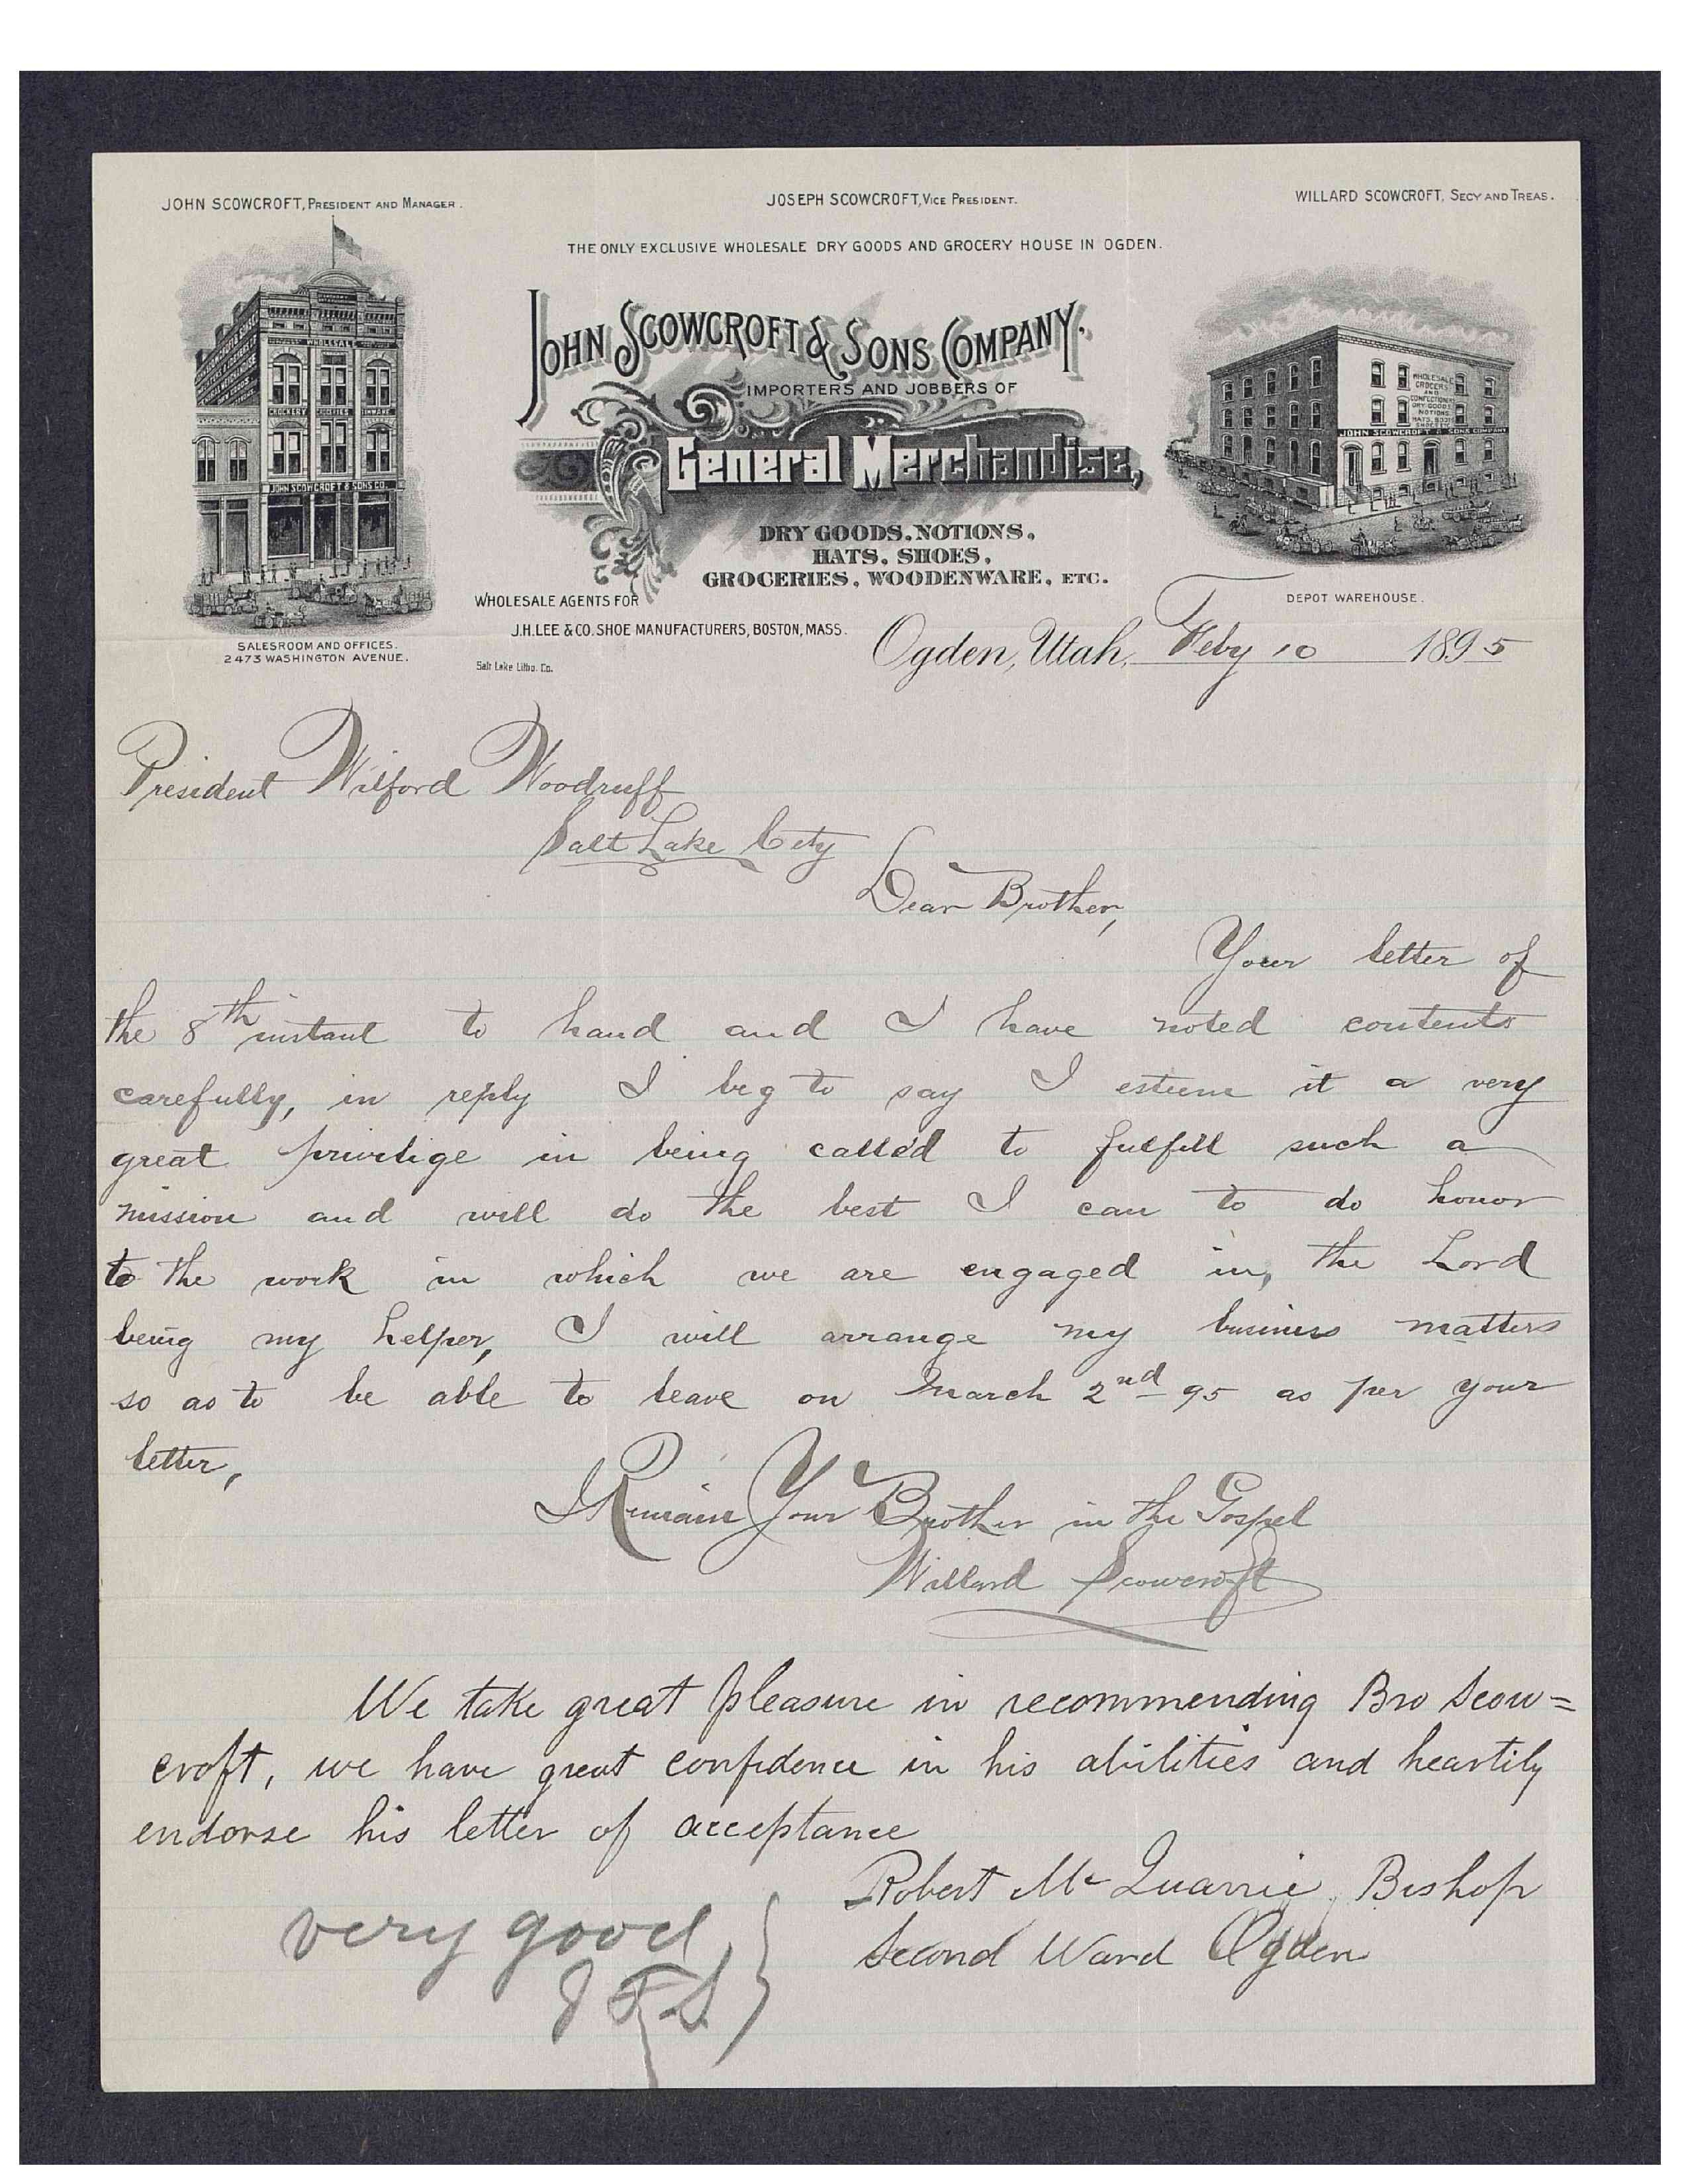 JOHN SCOWCROFT, PRESIDENT AND MANAGER.
JOSEPH SCOWCROFT, VICE PRESIDENT.
WILLARD SCOWCROFT, SECY AND TREAS.
THE ONLY EXCLUSIVE WHOLESALE DRY GOODS AND GROCERY HOUSE IN OGDEN.
JOHN SCOWCROFT & SONS COMPANY.
IMPORTERS AND JOBBERS OF
General Merchandise,
DRY GOODS, NOTIONS,
HATS, SHOES,
GROCERIES, WOODENWARE, ETC.
WHOLESALE
CROCKERY GROCERIES TINWARE
JOHN SCOWCROFT & SONS CO.
WHOLESALE
GROCERS
AND
CONFECTIONERS
DRY GOODS
NOTIONS
JOHN SCOWCROFT & SONS COMPANY
WHOLESALE AGENTS FOR
J.H. LEE & CO. SHOE MANUFACTURERS, BOSTON, MASS.
SALESROOM AND OFFICES.
2473 WASHINGTON AVENUE.
Salt Lake Litho. Co.
DEPOT WAREHOUSE.
Ogden, Utah, Feby 10 1895
President Wilford Woodruff
Salt Lake City
Dear Brother,
Your letter of
the 8th instant to hand and I have noted contents
carefully, in reply I beg to say I esteem it a very
great privilige in being called to fulfill such a
mission and will do the best I can to do honor
to the work in which we are engaged in, the Lord
being my helper, I will arrange my business matters
so as to be able to leave on March 2nd 95 as per your
letter,
I Remain Your Brother in the Gospel
Willard Scowcroft
We take great pleasure in recommending Bro Scow=
croft, we have great confidence in his abilities and heartily
endorse his letter of acceptance
Robert McQuarrie, Bishop
Second Ward Ogden
very good
J F S